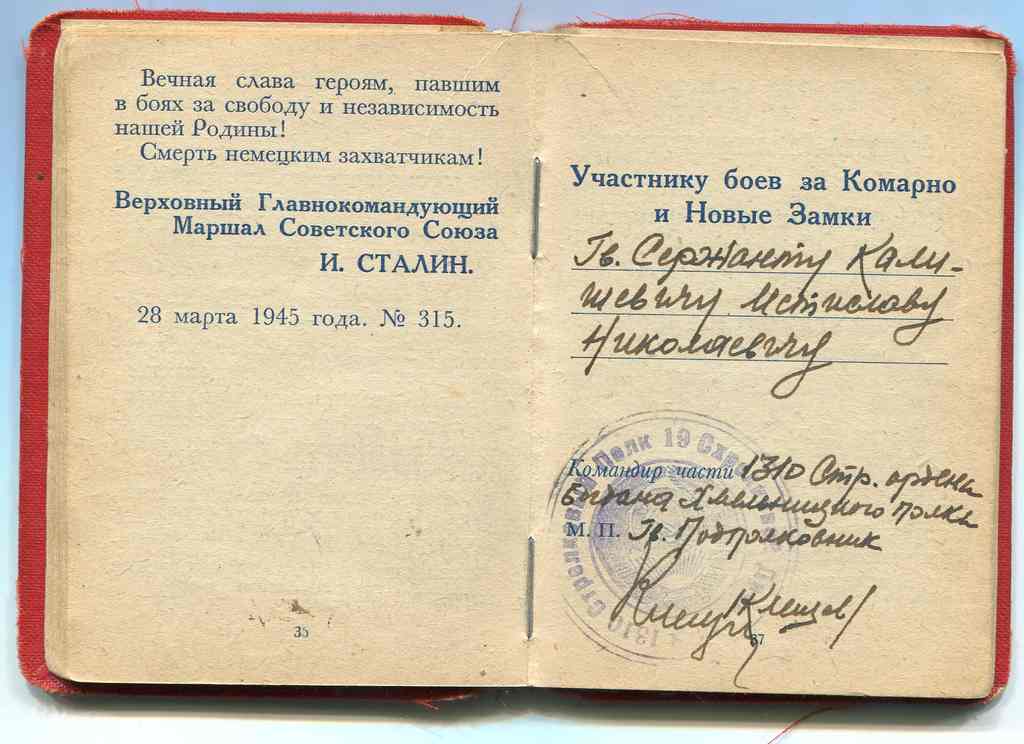 Вечная слава героям, павшим
в боях за свободу и независимость
нашей Родины!
Смерть немецким захватчикам!
Верховный Главнокомандующий
Маршал Советского Союза
И. СТАЛИН.
28 марта 1945 года. № 315.
35
Участнику боев за Комарно
и Новые Замки
Гв. Сержанту Кали-
шевичу Мстиславу
Николаевичу
Командир части 1310 Стр. ордена
Богдана Хмельницкого полка
М. П. Гв. Подполковник
/Клещев/
37
1310 Стрелковый Полк 19